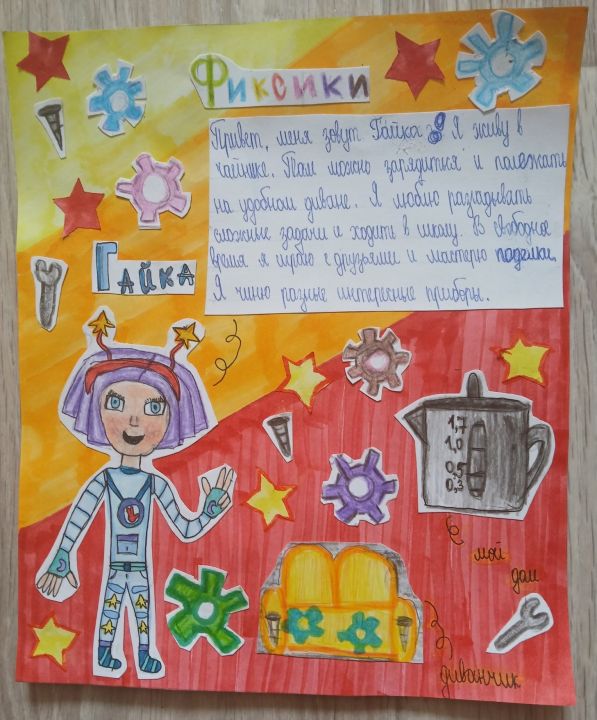 Фиксики
Привет, меня зовут Гайка. Я живу в
чайнике. Там можно зарядиться и полежать
на удобном диване. Я люблю разгадывать
сложные задачи и ходить в школу. В свободное
время я играю с друзьями и мастерю поделки.
Я чиню разные интересные приборы.
Гайка
1,7
1,0
0,5
0,3
мой
дом
диванчик